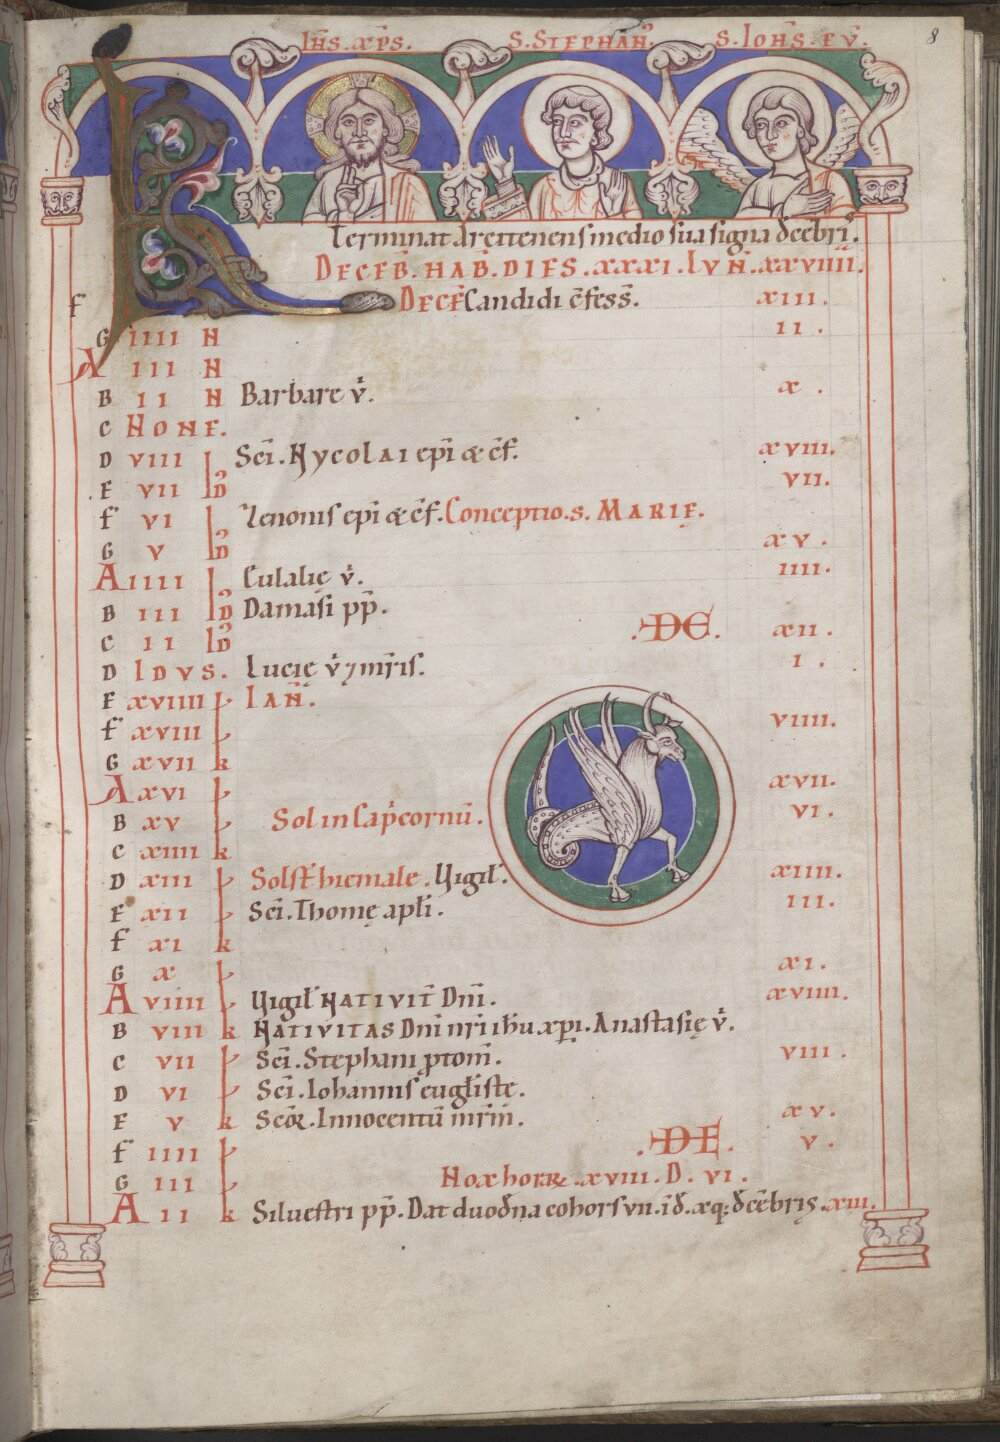 8
IHS. XPS. S. STEPHAN̄. S. IOHS. EV̄.
Terminat arcitenens medio sua signa decēbri.
DECEB̄. HAB̄. DIES. XXXI. LVN̄. XXVIIII.
F DECĒ Candidi c̄fess̄. XIII.
G IIII N II.
A III N
B II N Barbare v̄. X.
C NONE.
D VIII ID Sc̄i. Nycolai ep̄i & c̄f. XVIII.
E VII ID VII.
F VI ID Zenonis ep̄i & c̄f. Conceptio. s. MARIĘ.
G V ID XV.
A IIII ID Eulalię v̄. IIII.
B III ID Damasi pp̄.
C II ID .DE. XII.
D IDVS. Lucię v̄ ⁊ mr̄is. I.
E XVIIII k IAN̄.
F XVIII k VIIII.
G XVII k
A XVI k XVII.
B XV k Sol in Cap̄cornū. VI.
C XIIII k
D XIII k Solst̄ hiemale. Vigil̄. XIIII.
E XII k Sc̄i. Thomę apl̄i. III.
F XI k
G X k XI.
A VIIII k Vigil̄ NATIVIT̄ Dn̄i. XVIIII.
B VIII k NATIVITAS Dn̄i nr̄i ih̄u xp̄i. Anastasię v̄.
C VII k Sc̄i. Stephani ꝓtom̄. VIII.
D VI k Sc̄i. Iohannis eugl̄iste.
E V k Scōꝝ. Innocentū mr̄m̄. XV.
F IIII k .DE. V.
G III k Nox horaꝝ. XVIII. D. VI.
A II k Siluestri pp̄. Dat duodna cohors vii. īd. xq; dēcēbris. XIII.